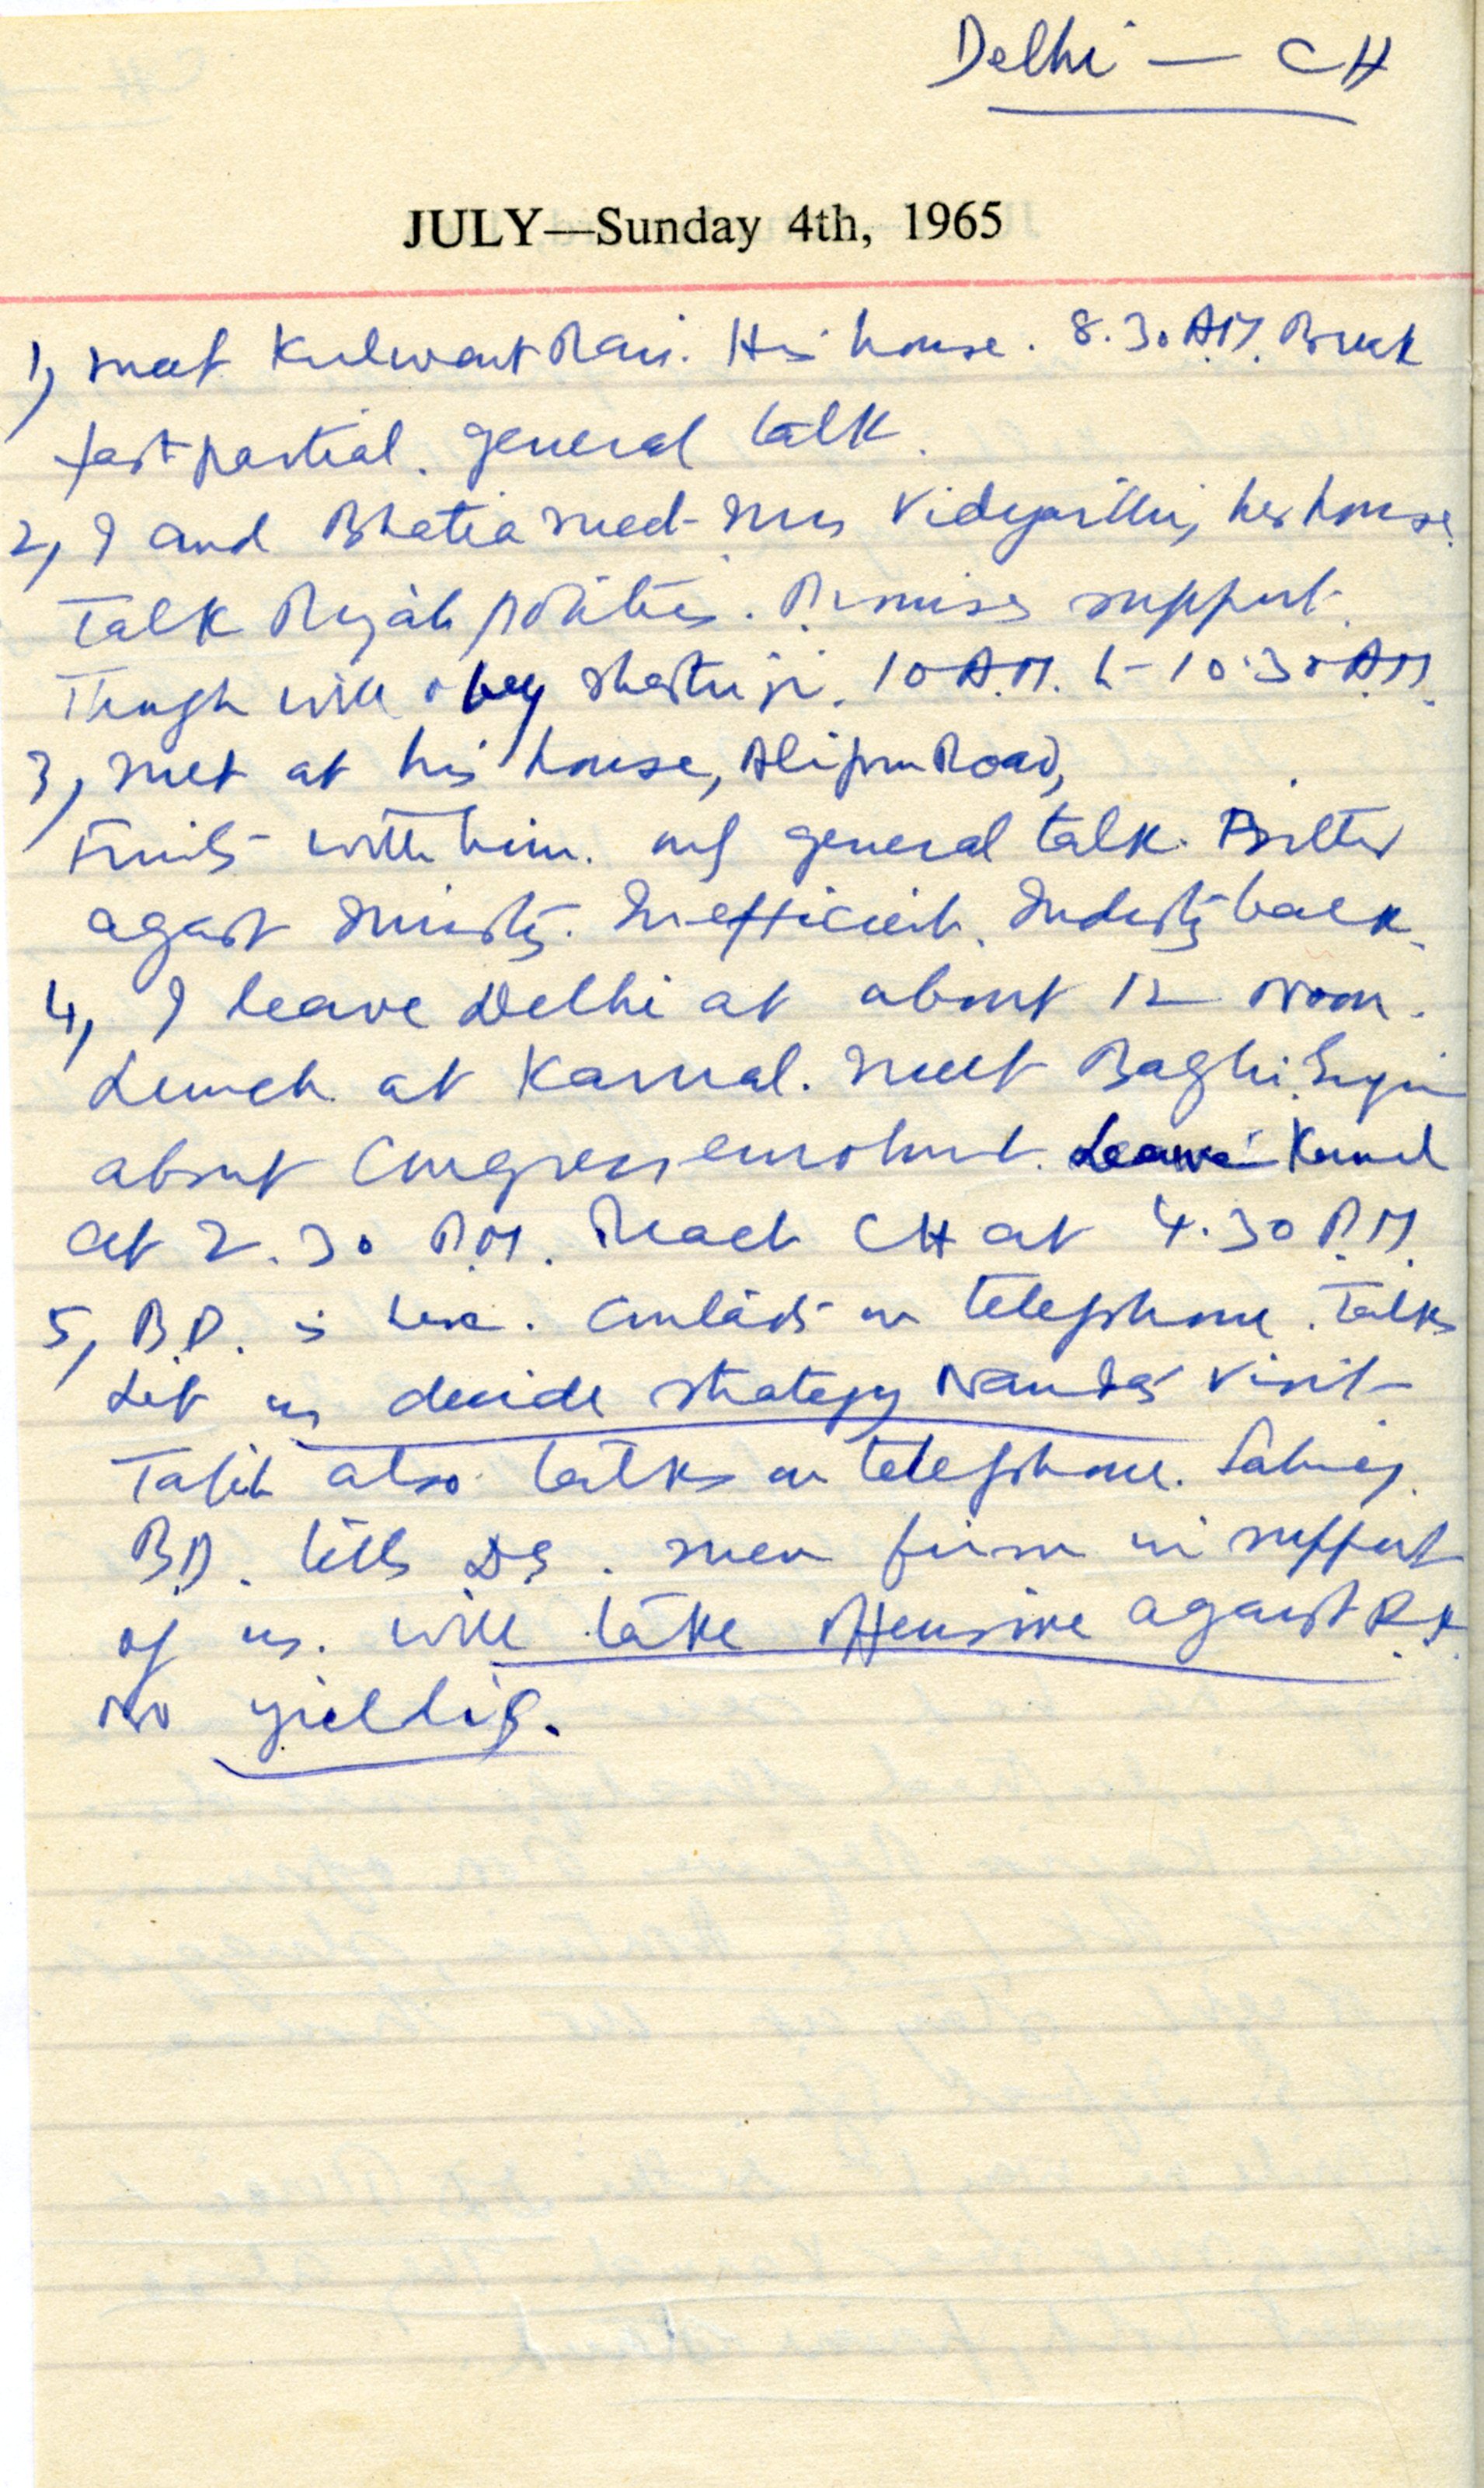 Delhi — CH
JULY—Sunday 4th, 1965
1, meet Kulwant Rai. His house. 8.30 A.M. Break
fast partial. general talk.
2, I and Bhatia meet Mrs Vidyarthi, her house.
Talk Punjab politics. Promises support.
Though will obey Shastri ji. 10 A.M. to 10.30 A.M.
3, met at his house, Alipur Road,
Fruits with him. only general talk. Bitter
against Ministry. Inefficient. Industry back.
4, I leave Delhi at about 12 noon.
Lunch at Karnal. meet Baghi
about Congress enrolment. Leave Karnal
at 2.30 P.M. Reach CH at 4.30 P.M.
5, B.D. is here. Contacts on telephone. Talks
Let us decide strategy Nanda's visit
also talks on telephone.
B.D. tells DS. men firm in support
of us. will take offensive against R.K.
no yielding.